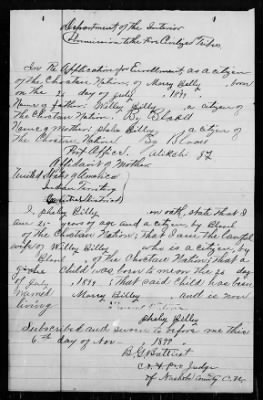 Department of the Interior
Commission to the Five Civilized Tribes
In the Application for Enrollment, as a citizen
of the Choctaw Nation, of Mary Billy, born
on the 26 day of July, 1899
Name of father: Willey Billey, a citizen of
the Choctaw Nation. By Blood
Name of Mother: Pheby Billey a citizen of
the Choctaw Nation By Blood
Post Office, Alikchi I.T.
Affidavit of Mother
United States of America
Indian Territory
Central District
I, Phebey Billey on oath, state that I
am years of age and a citizen, by Blood
of the Choctaw Nation; that I am the lawful
wife of Willey Billey, who is a citizen, by
Blood, of the Choctaw Nation; that a
child was born to me on the 26 day
of July, 1899; that said child has been
named Mary Billey, and is now
living
Phebey Billey
Subscribed and sworn to before me this
6th day of Nov 1899
B. G. Battiest
Judge
of Nashoba County C.N.